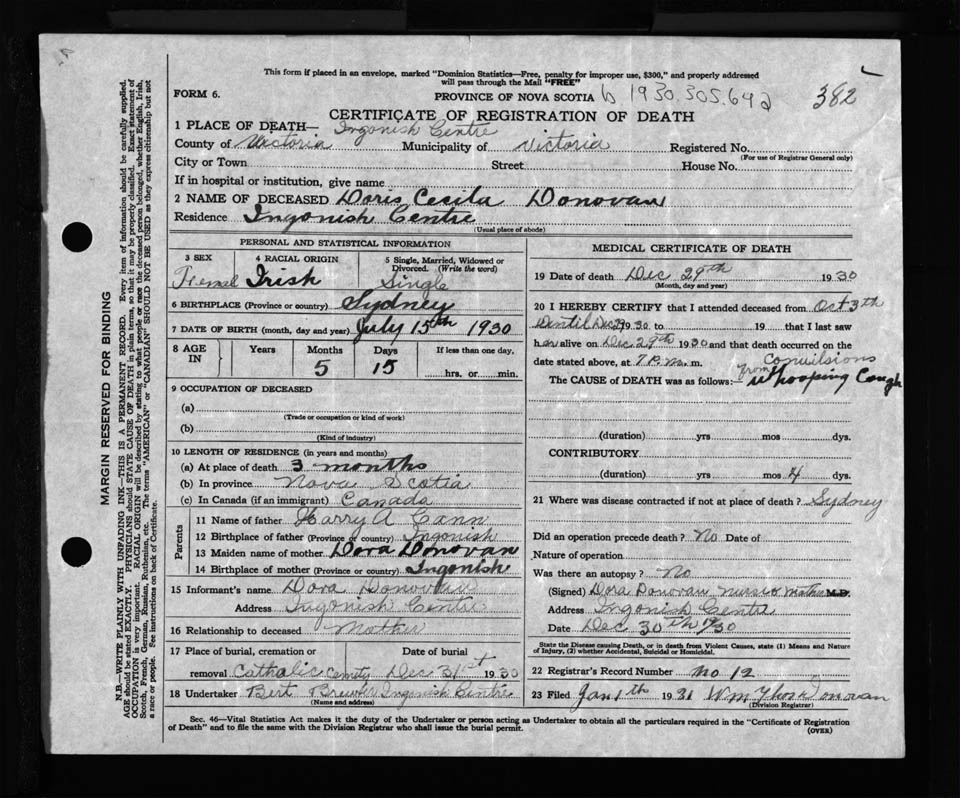 This form if placed in an envelope, marked "Dominion Statistics—Free, penalty for improper use, $300," and properly addressed
will pass through the Mail "FREE"
FORM 6.
PROVINCE OF NOVA SCOTIA
1930.305.642
382
CERTIFICATE OF REGISTRATION OF DEATH
1 PLACE OF DEATH— Ingonish Centre
County of Victoria Municipality of Victoria Registered No.
(For use of Registrar General only)
City or Town Street House No.
If in hospital or institution, give name
2 NAME OF DECEASED Doris Cecila Donovan
Residence Ingonish Centre
(Usual place of abode)
PERSONAL AND STATISTICAL INFORMATION
3 SEX 4 RACIAL ORIGIN 5 Single, Married, Widowed or
Divorced. (Write the word)
Femal Irish Single
6 BIRTHPLACE (Province or country) Sydney
7 DATE OF BIRTH (month, day and year) July 15th 1930
8 AGE IN Years Months Days If less than one day,
5 15 hrs. or min.
9 OCCUPATION OF DECEASED
(a)
(Trade or occupation or kind of work)
(b)
(Kind of industry)
10 LENGTH OF RESIDENCE (in years and months)
(a) At place of death 3 months
(b) In province Nova Scotia
(c) In Canada (if an immigrant) Canada
Parents
11 Name of father Harry A Cann
12 Birthplace of father (Province or country) Ingonish
13 Maiden name of mother Dora Donovan
14 Birthplace of mother (Province or country) Ingonish
15 Informant's name Dora Donovan
Address Ingonish Centre
16 Relationship to deceased Mother
17 Place of burial, cremation or Date of burial
removal Catholic Cemty Dec 31st 1930
18 Undertaker Bert Brewer Ingonish Centre
(Name and address)
MEDICAL CERTIFICATE OF DEATH
19 Date of death Dec 29th 1930
(Month, day and year)
20 I HEREBY CERTIFY that I attended deceased from Oct 3th
Until Dec 29 1930 to 19 that I last saw
h alive on Dec 29th 1930 and that death occurred on the
date stated above, at 7 P.m. m.
The CAUSE OF DEATH was as follows:— from Convulsions
Whooping Cough
(duration) yrs mos dys.
CONTRIBUTORY
(duration) yrs mos 4 dys.
21 Where was disease contracted if not at place of death? Sydney
Did an operation precede death? No Date of
Nature of operation
Was there an autopsy? No
(Signed) Dora Donovan nurse mother M.D.
Address Ingonish Centre
Date Dec 30th 1930
State the Disease causing Death, or in death from Violent Causes, state (1) Means and Nature
of Injury, (2) whether Accidental, Suicidal or Homicidal.
22 Registrar's Record Number No 12
23 Filed Jan 1th 1931 Wm Thos Donovan
(Division Registrar)
Sec. 46—Vital Statistics Act makes it the duty of the Undertaker or person acting as Undertaker to obtain all the particulars required in the "Certificate of Registration
of Death" and to file the same with the Division Registrar who shall issue the burial permit.
(OVER)
MARGIN RESERVED FOR BINDING
N.B.—WRITE PLAINLY WITH UNFADING INK—THIS IS A PERMANENT RECORD. Every item of information should be carefully supplied.
AGE should be stated EXACTLY. PHYSICIANS should STATE CAUSE OF DEATH in plain terms, so that it may be properly classified. Exact statement of
OCCUPATION is very important. RACIAL ORIGIN will be described by stating to what people or race the deceased person belonged, whether English, Irish,
Scotch, French, German, Russian, Ruthenian, etc. The terms "AMERICAN" or "CANADIAN" SHOULD NOT BE USED as they express citizenship but not
a race or people. See instructions on back of Certificate.